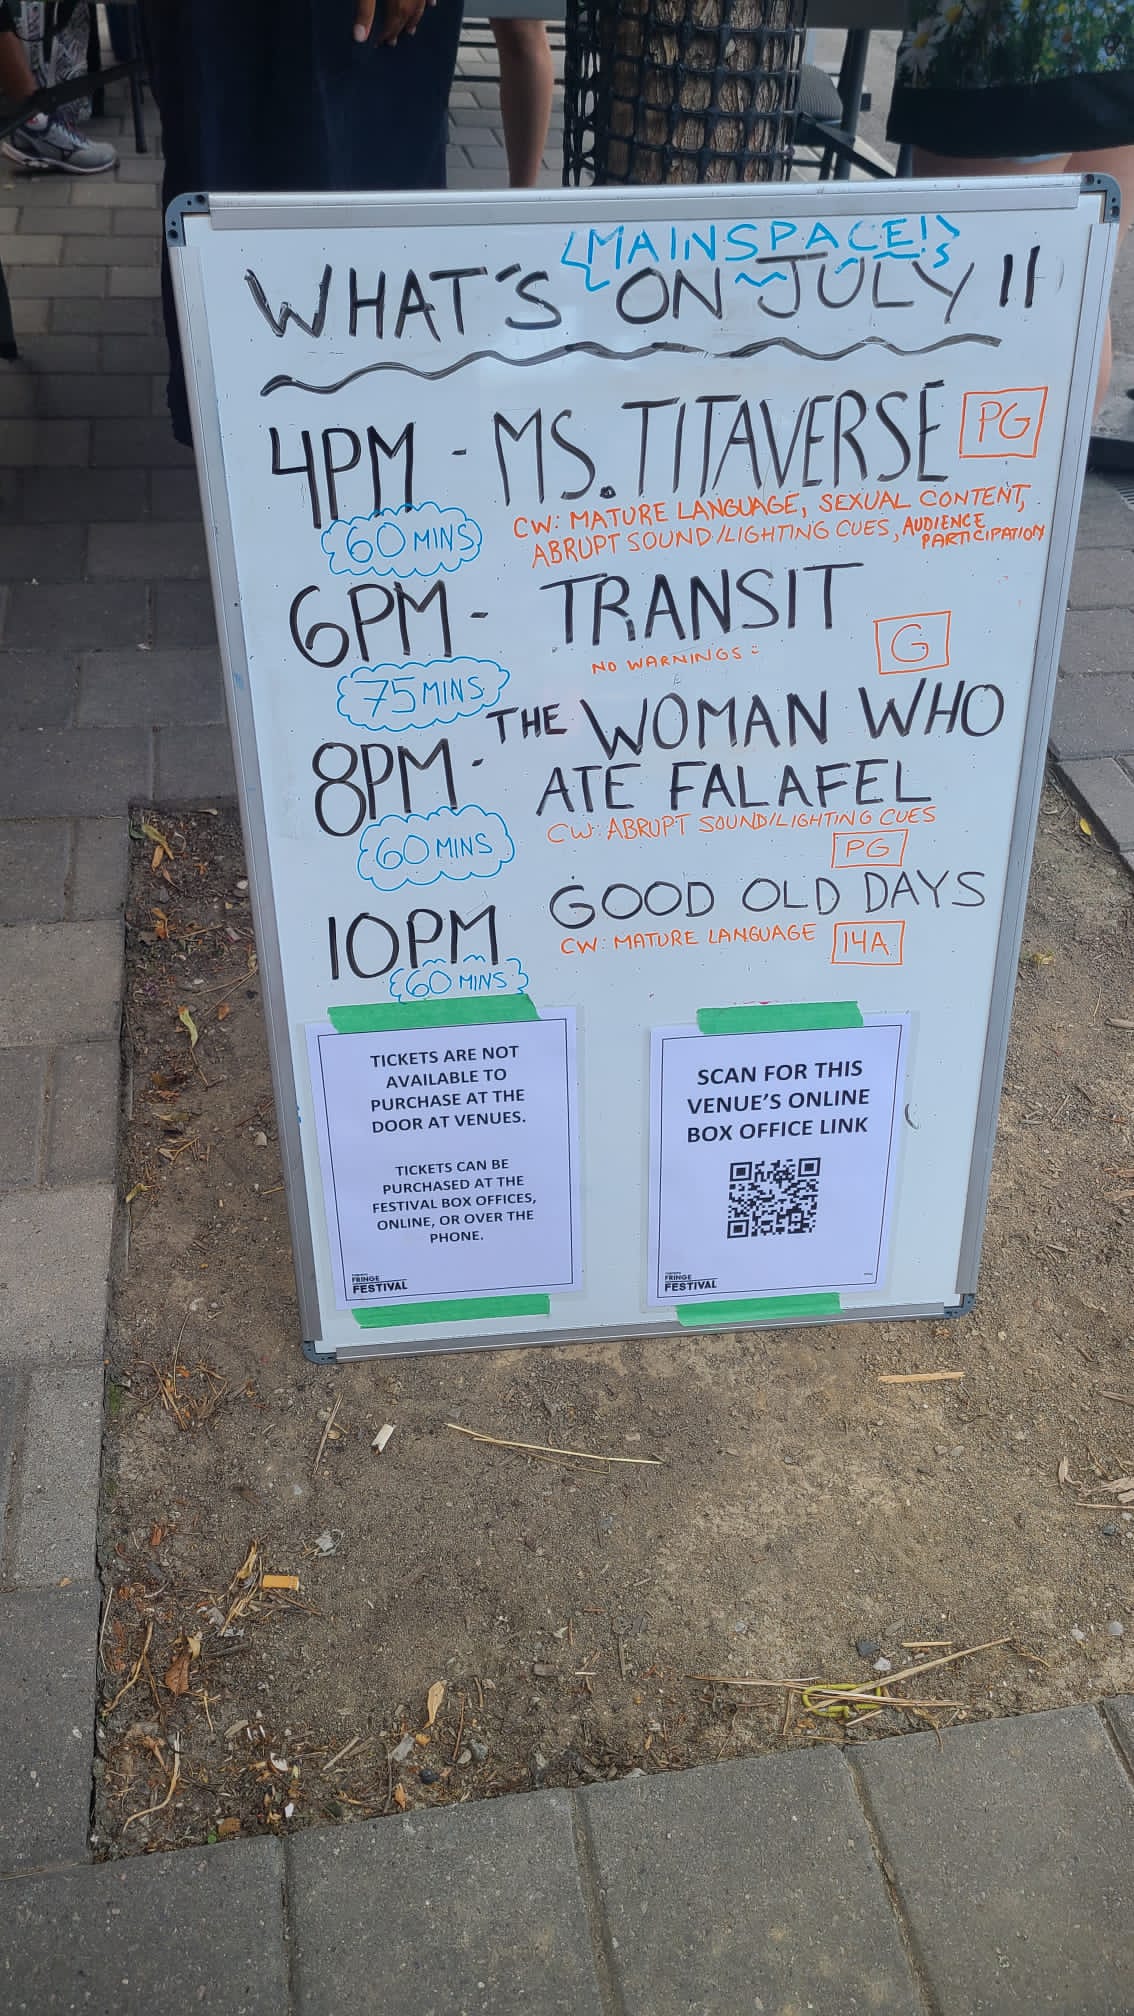 {MAINSPACE!}
WHAT'S ON JULY 11
4PM - MS. TITAVERSE PG
60 MINS
CW: MATURE LANGUAGE, SEXUAL CONTENT,
ABRUPT SOUND/LIGHTING CUES, AUDIENCE
PARTICIPATION
6PM - TRANSIT
NO WARNINGS G
75 MINS
8PM - THE WOMAN WHO
ATE FALAFEL
60 MINS
CW: ABRUPT SOUND/LIGHTING CUES
PG
10PM GOOD OLD DAYS
CW: MATURE LANGUAGE 14A
60 MINS
TICKETS ARE NOT
AVAILABLE TO
PURCHASE AT THE
DOOR AT VENUES.
TICKETS CAN BE
PURCHASED AT THE
FESTIVAL BOX OFFICES,
ONLINE, OR OVER THE
PHONE.
FRINGE
FESTIVAL
SCAN FOR THIS
VENUE'S ONLINE
BOX OFFICE LINK
FRINGE
FESTIVAL